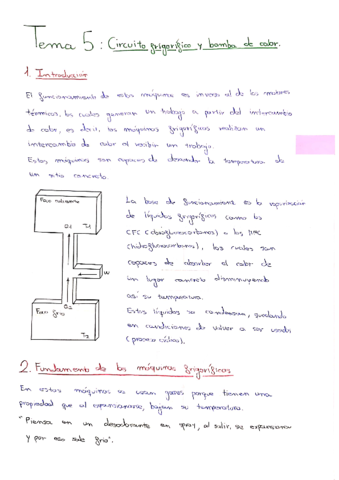 Tema 5: Circuito frigorífico y bomba de calor.
1. Introducción
El funcionamiento de estas máquinas es inverso al de los motores
térmicos, los cuales generan un trabajo a partir del intercambio
de calor, es decir, las máquinas frigoríficas realizan un
intercambio de calor al recibir un trabajo.
Estas máquinas son capaces de descender la temperatura de
un sitio concreto.
Foco caliente
Q1 T1
W
Q2
Foco frío
T2
La base de funcionamiento es la vaporización
de líquidos frigoríficos como los
CFC (clorofluorocarbonos) o los HFC
(hidrofluorocarbonos), los cuales son
capaces de absorber el calor de
un lugar concreto disminuyendo
así su temperatura.
Estos líquidos se condensan, quedando
en condiciones de volver a ser usados
(proceso cíclico).
2. Fundamento de las máquinas frigoríficas
En estas máquinas se usan gases porque tienen una
propiedad que al expansionarse, bajan su temperatura.
"Piensa en un desodorante en spray, al salir, se expansiona
y por eso sale frío".